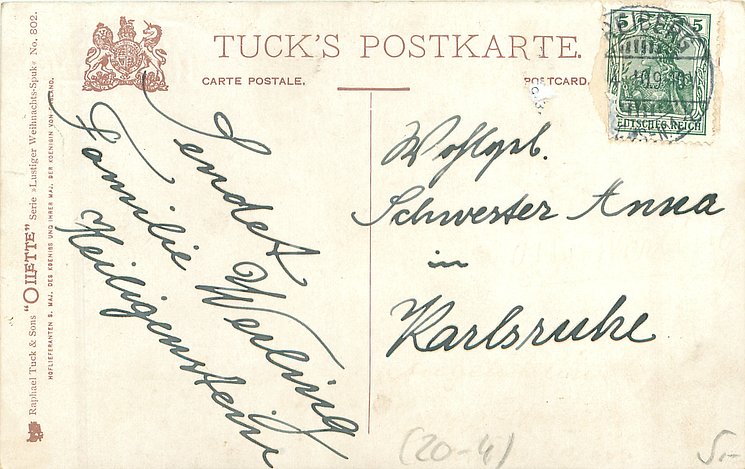 TUCK'S POSTKARTE.
CARTE POSTALE. POSTCARD.
Raphael Tuck & Sons "OILETTE" Serie »Lustiger Weihnachts-Spuk« No. 802.
HOFLIEFERANTEN S. MAJ. DES KOENIGS UND IHRER MAJ. DER KOENIGIN VON ENGLAND.
Sendet
Familie Werling
Heiligenstein
5 5
DEUTSCHES REICH
Wohlgeb.
Schwester Anna
in
Karlsruhe
(20-4)
5.-